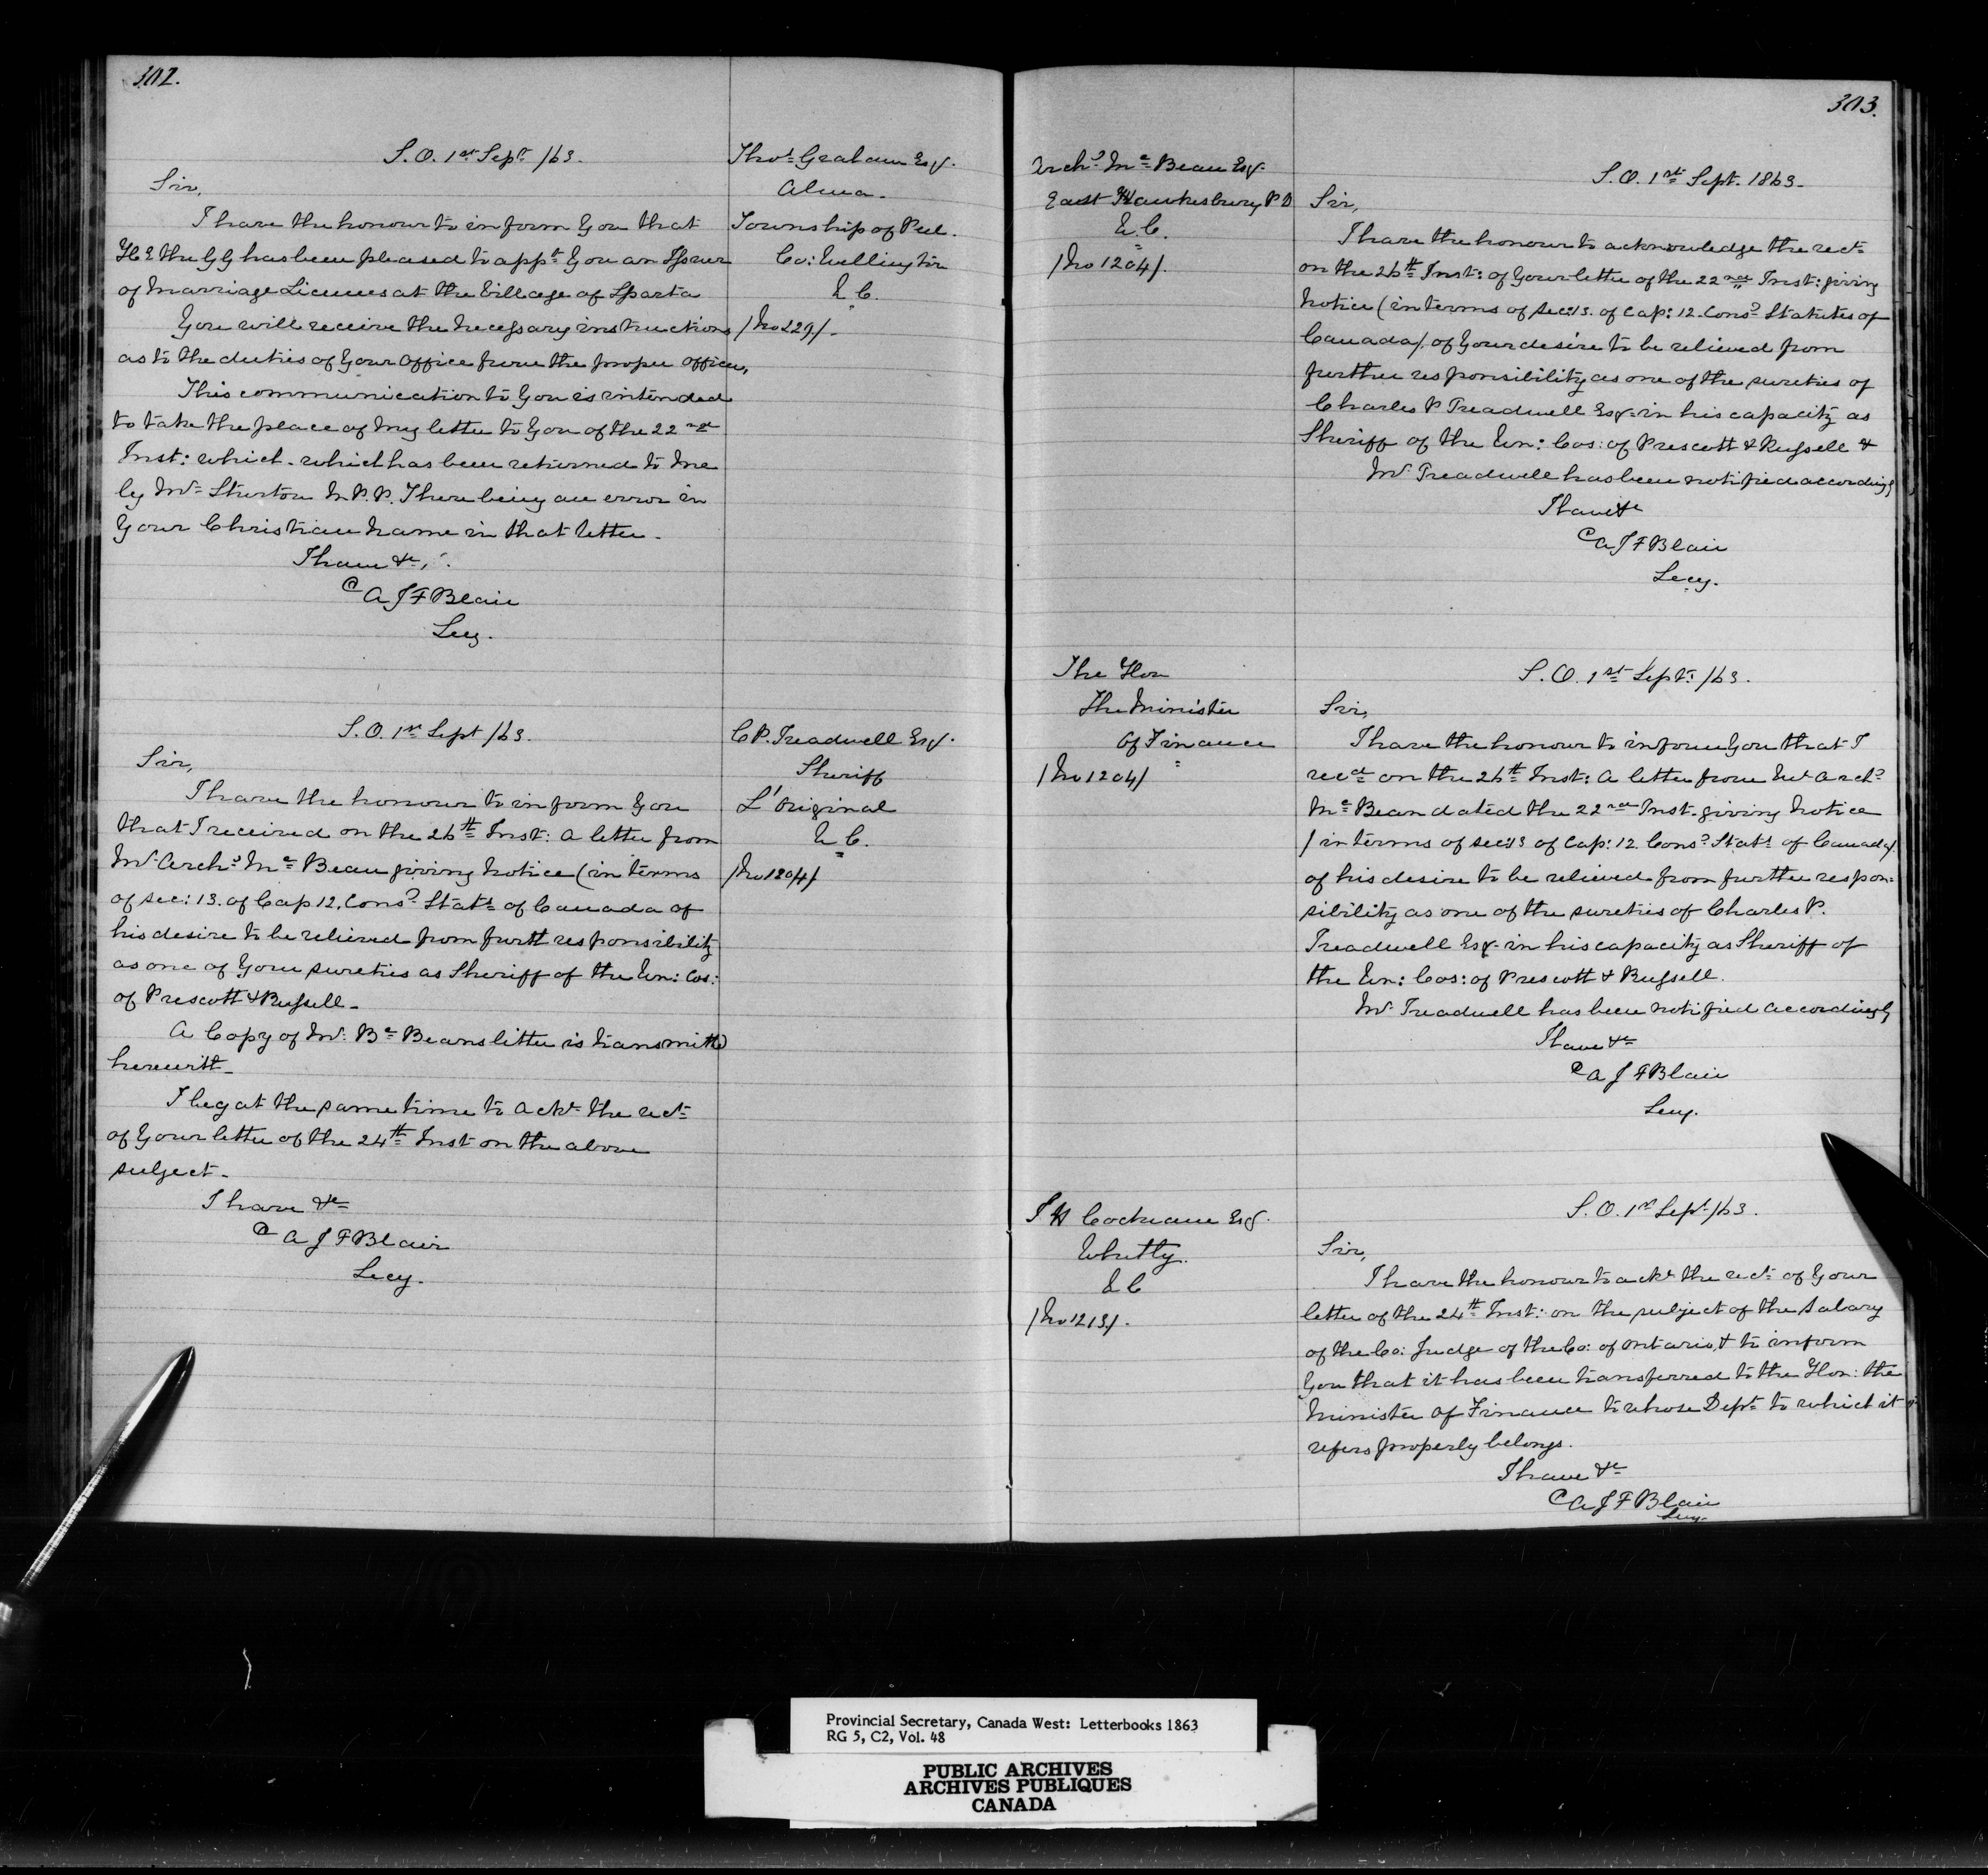 302.
S.O. 1st Sept /63.
Thos Graham Esq.
Alma.
Township of Peel.
Co: Wellington
U.C.
/No 229/.
Sir,
I have the honour to inform you that
H E the G G has been pleased to appt you an Issuer
of Marriage Licenses at the Village of Sparta
You will receive the necessary instructions
as to the duties of your office from the proper officer,
This communication to you is intended
to take the place of my letter to you of the 22nd
Inst: which which has been returned to me
by Mr Stirton M.P.P. There being an error in
your Christian name in that letter.
I have &c,
A J F Blair
Secy.
S.O. 1st Sept /63.
C P. Treadwell Esq.
Sheriff
L'Original
U C.
/No 1204/
Sir,
I have the honour to inform you
that I received on the 26th Inst: a letter from
Mr Archd Mc Bean giving notice (in terms
of sec: 13. of Cap 12. Consd Stats of Canada of
his desire to be relieved from furth responsibility
as one of your sureties as Sheriff of the Un: Cos:
of Prescott & Russell.
A Copy of Mr Bc Beans letter is transmitted
herewith.
I beg at the same time to ackt the rect
of your letter of the 24th Inst on the above
subject.
I have &c
A J F Blair
Secy.
303.
Archd Mc Bean Esq.
East Hawkesbury P O
U.C.
/No 1204/.
S.O. 1st Sept. 1863.
Sir,
I have the honour to acknowledge the rect
on the 26th Inst: of your letter of the 22nd Inst: giving
notice (in terms of sec: 13. of Cap: 12. Consd Statutes of
Canada/. of your desire to be relieved from
further responsibility as one of the sureties of
Charles P Treadwell Esq. in his capacity as
Sheriff of the Un: Cos: of Prescott & Russell &
Mr Treadwell has been notified accordingly
I have &c
A J F Blair
Secy.
The Hon
The Minister
of Finance
/No 1204/
S.O. 1st Sept. /63.
Sir,
I have the honour to inform you that I
recd on the 26th Inst: a letter from Mr Archd
Mc Bean dated the 22nd Inst. giving notice
/in terms of sec: 13 of Cap: 12. Consd Stats of Canada/.
of his desire to be relieved from further respon=
sibility as one of the sureties of Charles P.
Treadwell Esq. in his capacity as Sheriff of
the Un: Cos: of Prescott & Russell.
Mr Treadwell has been notified accordingly
I have &c
A J F Blair
Secy.
Cochrane Esq.
Whitby.
U C
/No 1213/.
S.O. 1st Sept /63.
Sir,
I have the honour to ackt the rect of your
letter of the 24th Inst: on the subject of the salary
of the Co: Judge of the Co: of Ontario, & to inform
you that it has been transferred to the Hon: the
Minister of Finance to whose Dept to which it
refers properly belongs.
I have &c
A J F Blair
Secy.
Provincial Secretary, Canada West: Letterbooks 1863
RG 5, C2, Vol. 48
PUBLIC ARCHIVES
ARCHIVES PUBLIQUES
CANADA